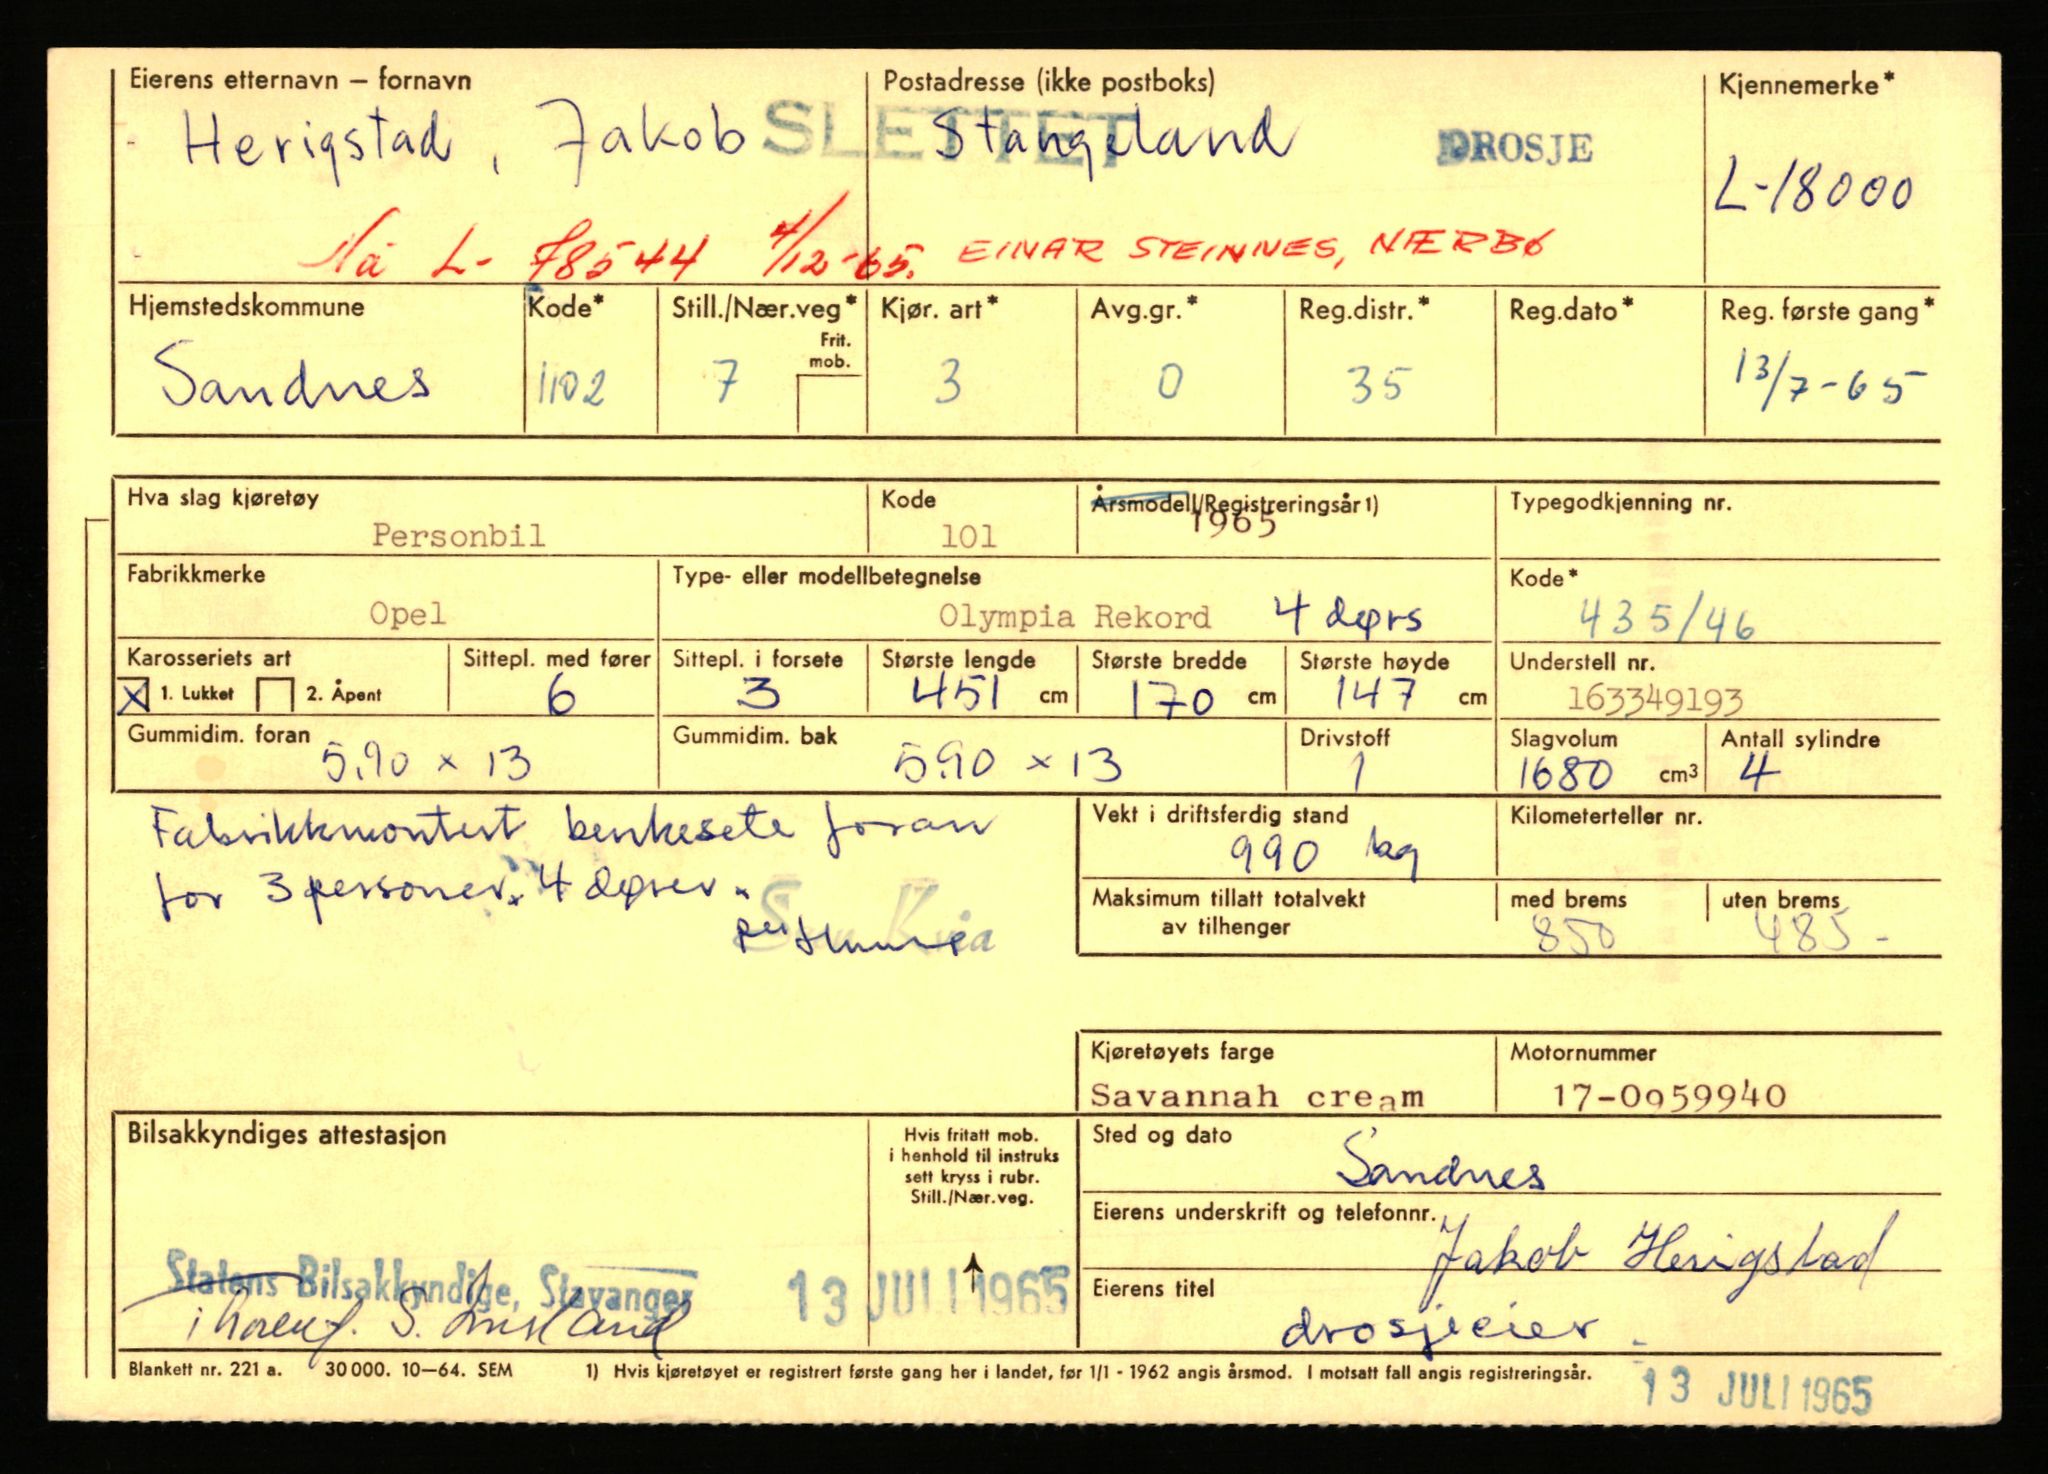 Eierens etternavn – fornavn Postadresse (ikke postboks) Kjennemerke*
Herigstad, Jakob SLETTET Stangeland DROSJE
L-18000
Nå L- 78544 4/12-65. EINAR STEINNES, NÆRBØ
Hjemstedskommune Kode* Still./Nær.veg* Kjør. art* Avg.gr.* Reg.distr.* Reg.dato* Reg. første gang*
Frit. mob.
Sandnes 1102 7 3 0 35 13/7-65
Hva slag kjøretøy Kode Årsmodell/Registreringsår 1) Typegodkjenning nr.
Personbil 101 1965
Fabrikkmerke Type- eller modellbetegnelse Kode*
Opel Olympia Rekord 4 dørs 435/46
Karosseriets art Sittepl. med fører Sittepl. i forsete Største lengde Største bredde Største høyde Understell nr.
X 1. Lukket 2. Åpent 6 3 451 cm 170 cm 147 cm 163349193
Gummidim. foran Gummidim. bak Drivstoff Slagvolum Antall sylindre
5.90 x 13 5.90 x 13 1 1680 cm3 4
Fabrikkmontert benkesete foran
for 3 personer. 4 dører.
Vekt i driftsferdig stand Kilometerteller nr.
990 kg
Maksimum tillatt totalvekt av tilhenger med brems uten brems
850 485-
Kjøretøyets farge Motornummer
Savannah cream 17-0959940
Bilsakkyndiges attestasjon
Hvis fritatt mob.
i henhold til instruks
sett kryss i rubr.
Still./Nær.veg.
Sted og dato
Sandnes
Eierens underskrift og telefonnr.
Jakob Herigstad
Statens Bilsakkyndige, Stavanger 13 JULI 1965
Eierens titel
drosjeeier
Blankett nr. 221 a. 30 000. 10–64. SEM 1) Hvis kjøretøyet er registrert første gang her i landet, før 1/1 - 1962 angis årsmod. I motsatt fall angis registreringsår.
13 JULI 1965